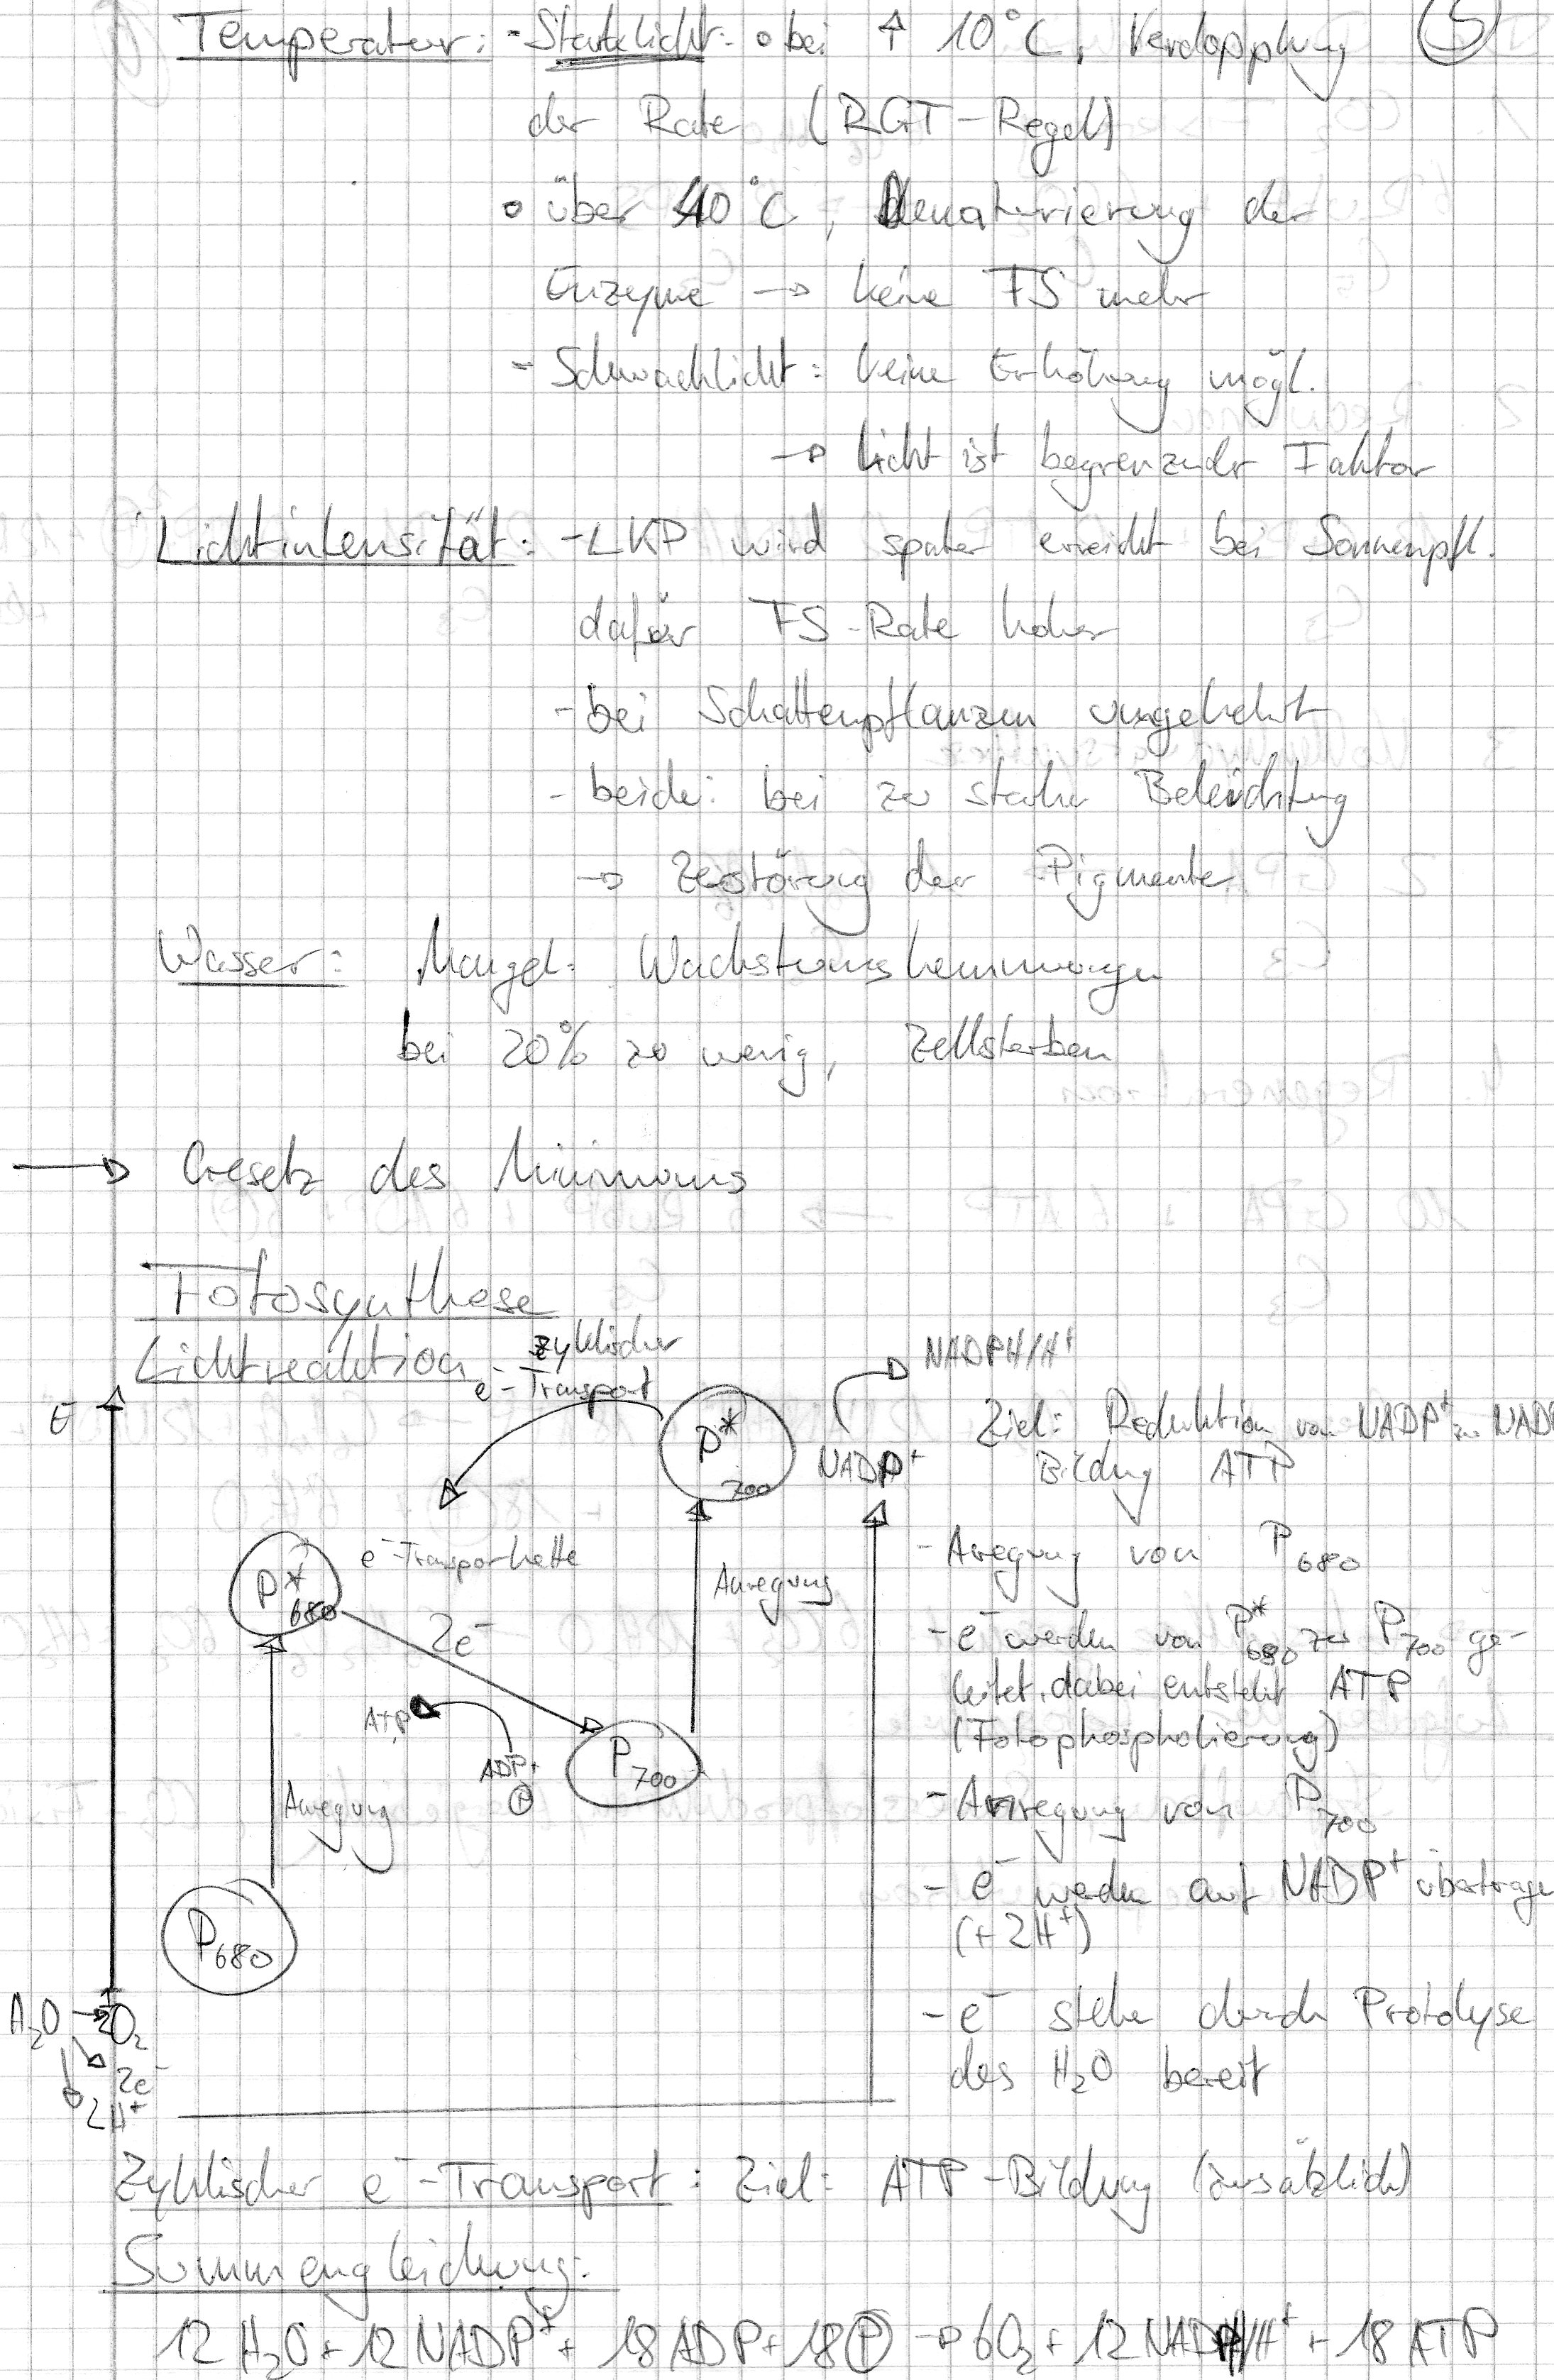 Temperatur: - Starklicht: • bei ↑ 10°C, Verdopplung
5
der Rate (RGT-Regel)
• über 40°C, Denaturierung der
Enzyme → keine FS mehr
- Schwachlicht: keine Erhöhung mögl.
→ Licht ist begrenzender Faktor
Lichtintensität: - LKP wird später erreicht bei Sonnenpfl.
dafür FS-Rate höher
- bei Schattenpflanzen umgekehrt
- beide: bei zu starker Beleichtung
→ Zerstörung der Pigmente
Wasser: Mangel: Wachstumshemmungen
bei 20% zu wenig, Zellsterben
→ Gesetz des Minimums
Fotosynthese
Lichtreaktion
zyklischer
e⁻-Transport
NADPH/H⁺
E
P*700
NADP⁺
Ziel: Reduktion von NADP⁺ zu NADP
Bildung ATP
e⁻-Transportkette
P*680
2e⁻
Anregung
ATP
ADP+
Ⓟ
P700
Anregung
P680
- Aregung von P680
- e⁻ werden von P*680 zu P700 ge-
leitet, dabei entsteht ATP
(Fotophospholierung)
- Anregung von P700
- e⁻ werden auf NADP⁺ übertrage
(+2H⁺)
- e⁻ stehe durch Protolyse
des H₂O bereit
H₂O → ½O₂
2e⁻
2H⁺
Zyklischer e⁻-Transport: Ziel: ATP-Bildung (zusätzlich)
Summengleichung:
12 H₂O + 12 NADP⁺ + 18 ADP + 18 Ⓟ → 6O₂ + 12 NADPH/H⁺ + 18 ATP